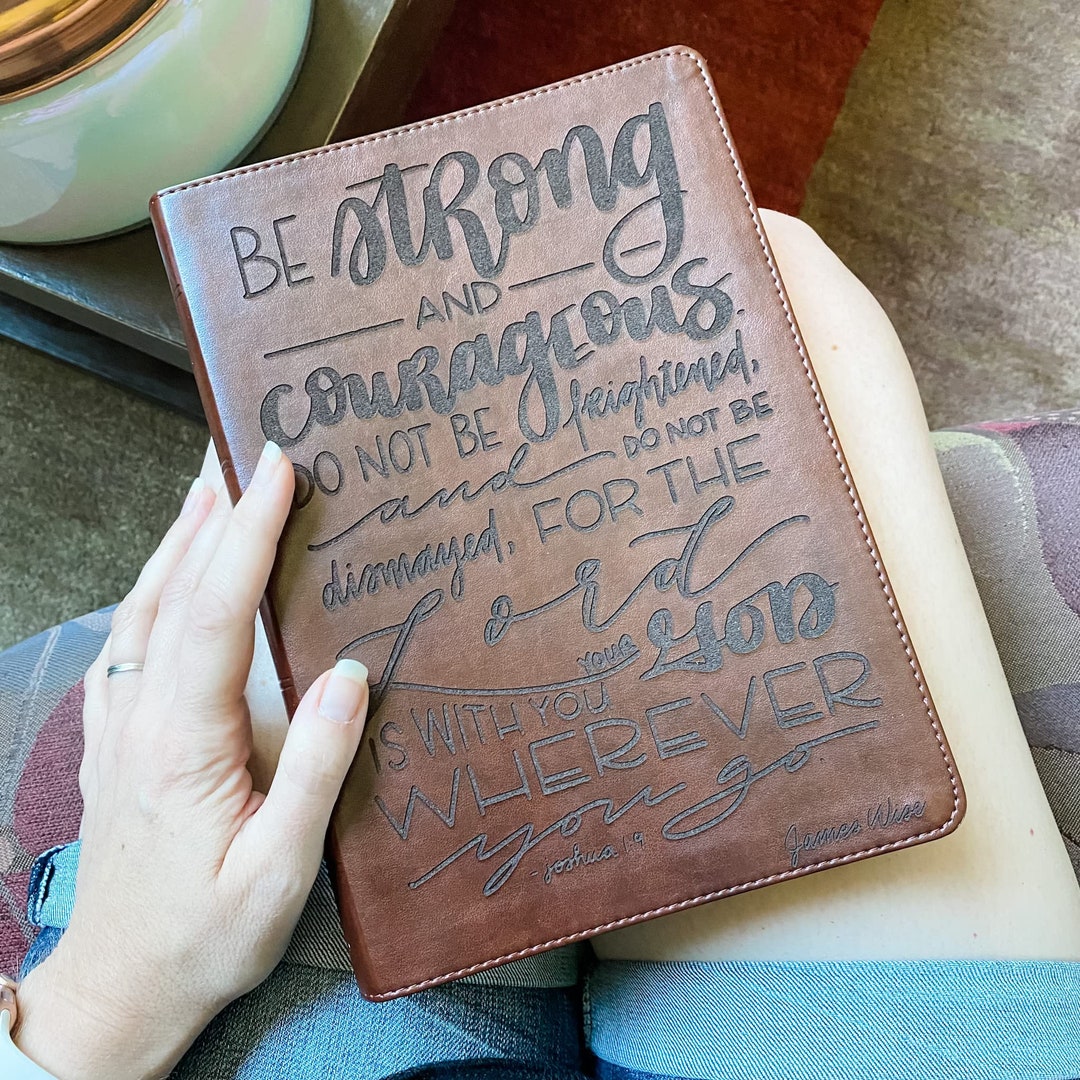 BE strong
AND
courageous.
DO NOT BE frightened,
and DO NOT BE
dismayed, FOR THE
Lord
YOUR GOD
IS WITH YOU
WHEREVER
you go
- Joshua 1:9
James Wise